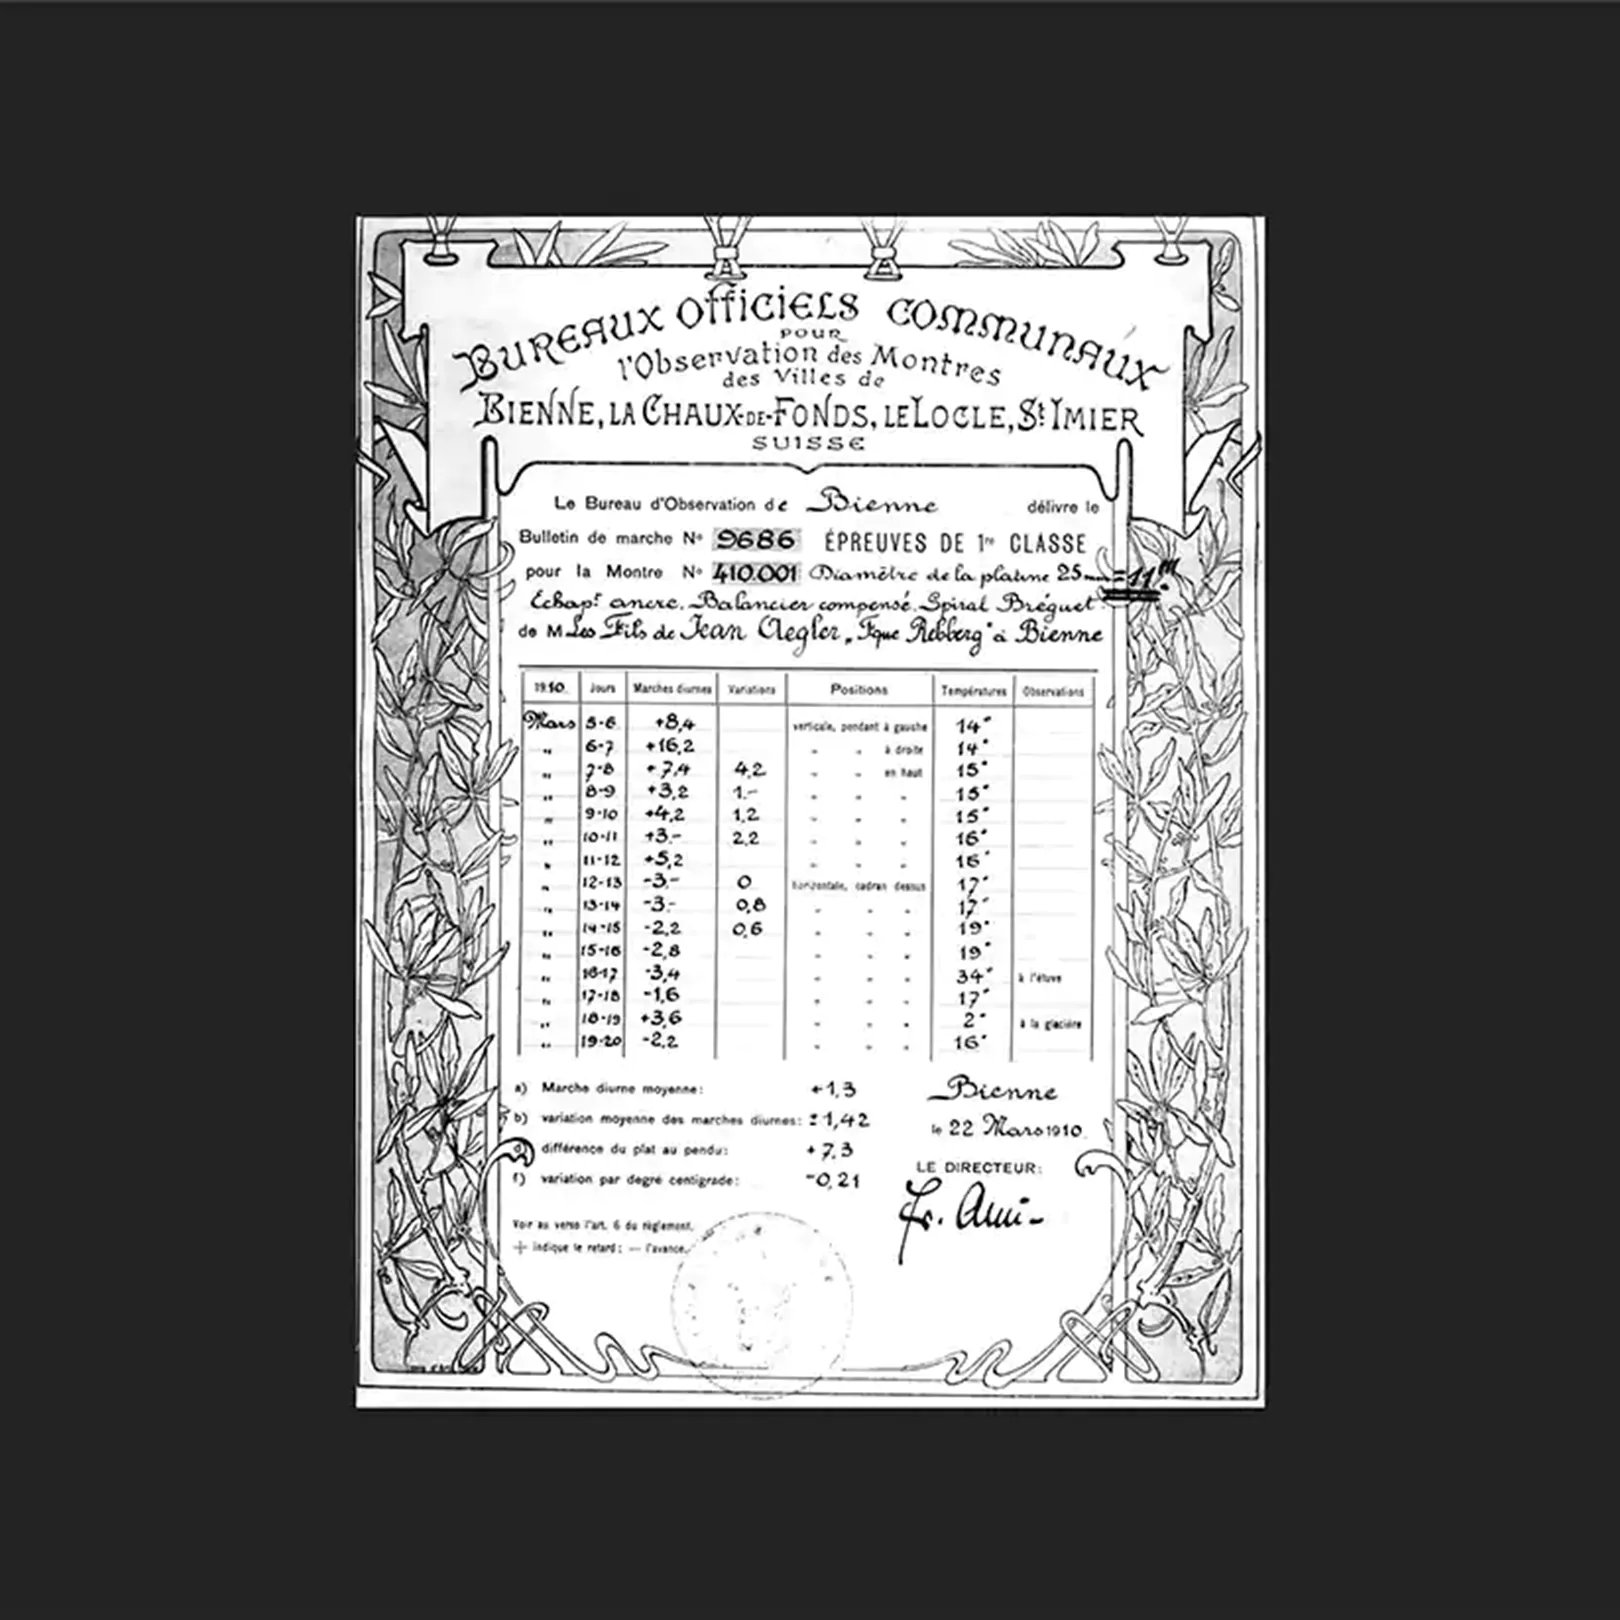 BUREAUX OFFICIELS COMMUNAUX
POUR
l'Observation des Montres
des Villes de
BIENNE, LA CHAUX-DE-FONDS, LE LOCLE, St IMIER
SUISSE
Le Bureau d'Observation de Bienne délivre le
Bulletin de marche No 9686 ÉPREUVES DE 1re CLASSE
pour la Montre No 410.001 Diamètre de la platine 25mm = 11'''
Échapt ancre. Balancier compensé. Spiral Bréguet.
de M Les Fils de Jean Aegler, "Fque Rebberg" à Bienne
1910. Jours Marches diurnes Variations Positions Températures Observations
Mars 5-6 +8,4 verticale, pendant à gauche 14°
" 6-7 +16,2 " " à droite 14°
" 7-8 +7,4 4,2 " " en haut 15°
" 8-9 +3,2 1.- " " " 15°
" 9-10 +4,2 1,2 " " " 15°
" 10-11 +3.- 2,2 " " " 16°
" 11-12 +5,2 " " " 16°
" 12-13 -3.- 0 horizontale, cadran dessus 17°
" 13-14 -3.- 0,8 " " " 17°
" 14-15 -2,2 0,6 " " " 19°
" 15-16 -2,8 " " " 19°
" 16-17 -3,4 " " " 34° à l'étuve
" 17-18 -1,6 " " " 17°
" 18-19 +3,6 " " " 2° à la glacière
" 19-20 -2,2 " " " 16°
a) Marche diurne moyenne: +1,3
b) variation moyenne des marches diurnes: ±1,42
d) différence du plat au pendu: +7,3
f) variation par degré centigrade: -0,21
Bienne
le 22 Mars 1910.
LE DIRECTEUR:
Voir au verso l'art. 6 du règlement.
+ indique le retard; — l'avance.